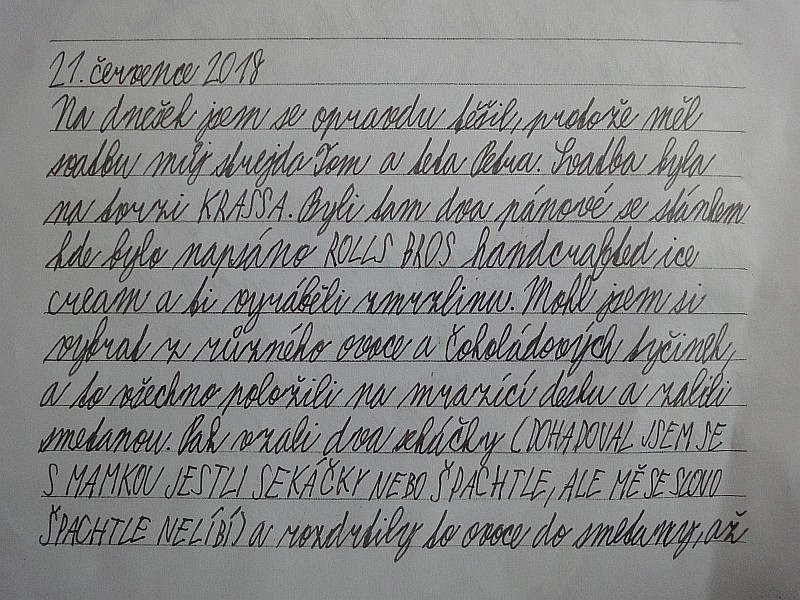 21. července 2018
Na dnešek jsem se opravdu těšil, protože měl
svatbu můj strejda Tom a teta Petra. Svatba byla
na tvrzi KRASSA. Byli tam dva pánové se stánkem
kde bylo napsáno ROLLS BROS handcrafted ice
cream a ti vyráběli zmrzlinu. Mohl jsem si
vybrat z různého ovoce a čokoládových tyčinek,
a to všechno položili na mrazící desku a zalili
smetanou. Pak vzali dva sekáčky (DOHADOVAL JSEM SE
S MAMKOU JESTLI SEKÁČKY NEBO ŠPACHTLE, ALE MĚ SE SLOVO
ŠPACHTLE NELÍBÍ) a rozdrtily to ovoce do smetany, až